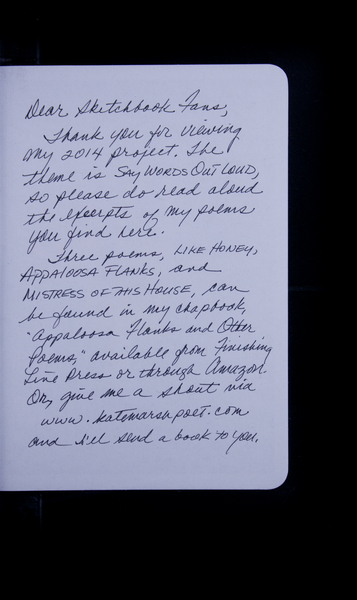 Dear Sketchbook Fans,
Thank you for viewing
my 2014 project. The
theme is SAY WORDS OUT LOUD,
so please do read aloud
the excerpts of my poems
you find here.
Three poems, LIKE HONEY,
APPALOOSA FLANKS, and
MISTRESS OF THIS HOUSE, can
be found in my chapbook,
"Appaloosa Flanks and Other
Poems," available from Finishing
Line Press or through Amazon
Or, give me a shout via
www.katemarshpoet.com
and I'll send a book to you.